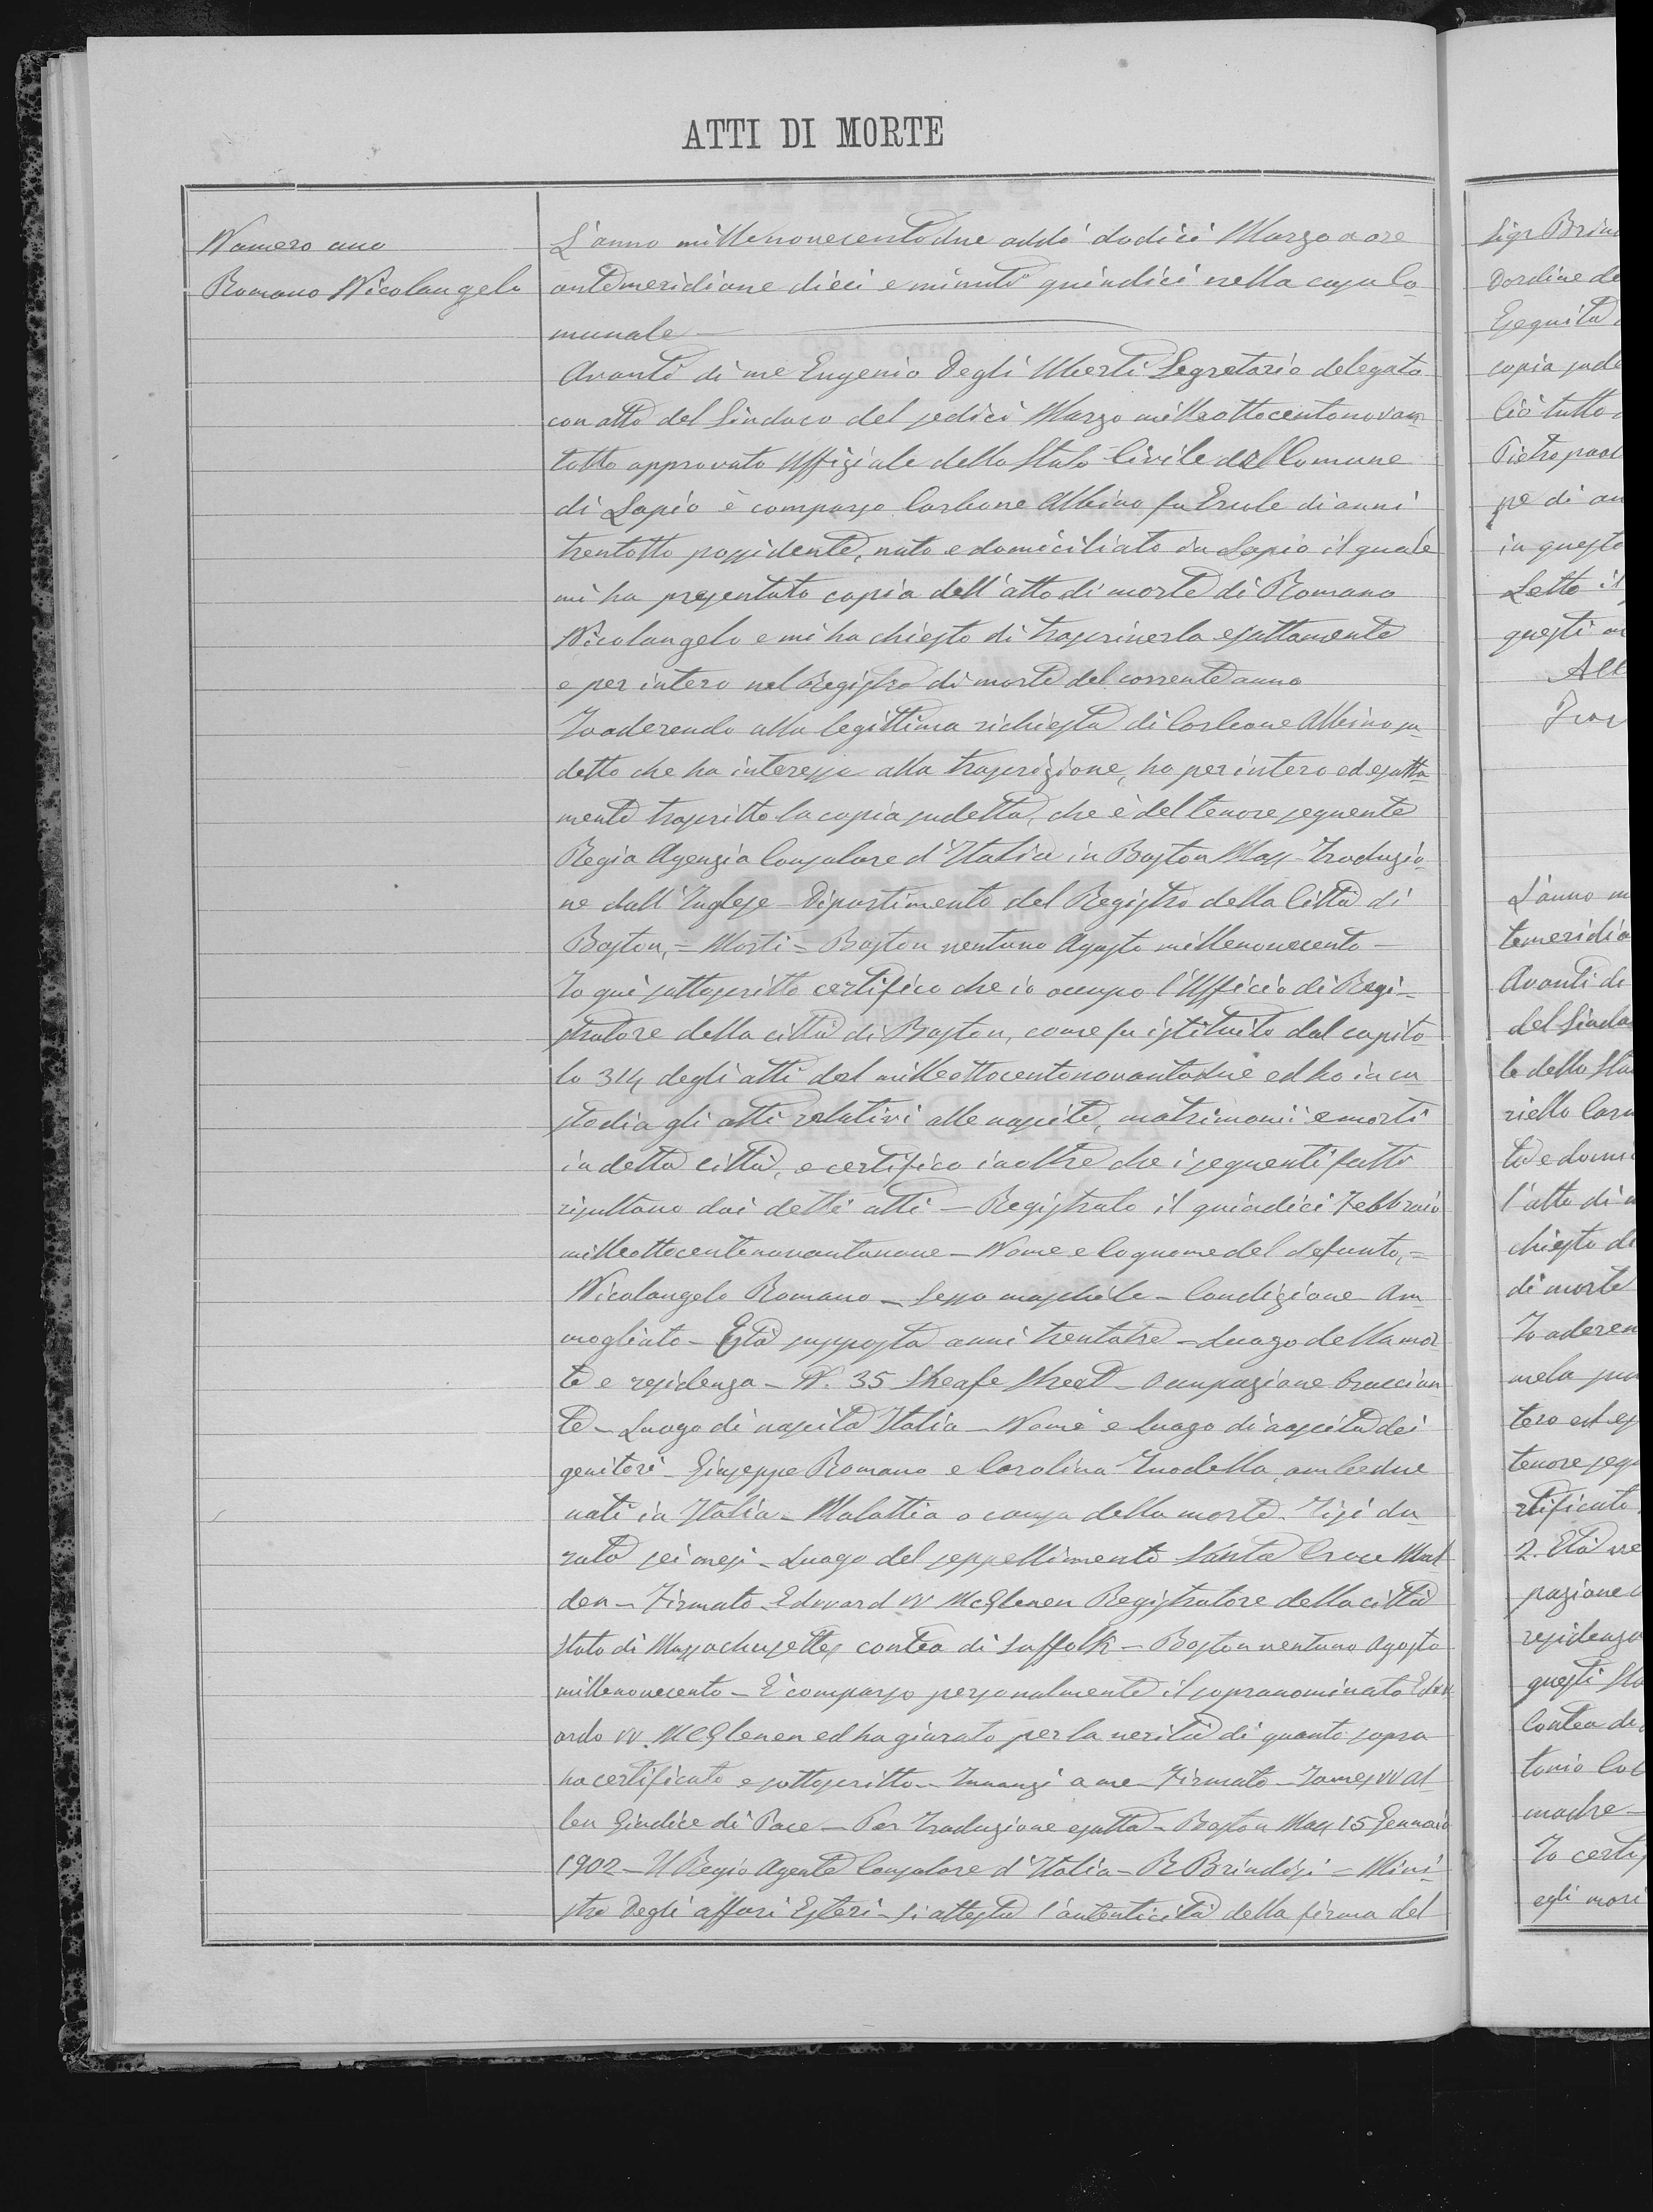 ATTI DI MORTE
Numero uno
Romano Nicolangelo
L'anno millenovecentodue addì dodici Marzo a ore
antimeridiane dieci e minuti quindici nella casa Co-
munale
Avanti di me Eugenio Degli Uberti Segretario delegato
con atto del Sindaco del sedici Marzo milleottocentonovan-
totto approvato Uffiziale dello Stato Civile del Comune
di Lapio è comparso Carbone Albino fu Ercole di anni
trentotto possidente, nato e domiciliato in Lapio il quale
mi ha presentato copia dell'atto di morte di Romano
Nicolangelo e mi ha chiesto di trascriverla esattamente
e per intero nel Registro di morte del corrente anno
Io aderendo alla legittima richiesta di Carbone Albino su-
detto che ha interesse alla trascrizione, ho per intero ed esatta-
mente trascritto la copia sudetta, che è del tenore seguente
Regia Agenzia Consolare d'Italia in Boston Mass - Traduzio-
ne dall'Inglese - Dipartimento del Registro della Città di
Boston, = Morti = Boston ventuno Agosto millenovecento -
Io quì sottoscritto certifico che io occupo l'Ufficio di Regi-
stratore della città di Boston, come fu istituito dal capito-
lo 314 degli atti del milleottocentonovantadue ed ho in cu-
stodia gli atti relativi alle nascite, matrimonii e morti
in detta città, e certifico inoltre che i seguenti fatti
risultano dai detti atti - Registrato il quindici Febbraio
milleottocentonovantanove - Nome e Cognome del defunto, =
Nicolangelo Romano - Sesso maschile - Condizione Am-
mogliato - Età supposta anni trentatre - Luogo della mor-
te e residenza - N. 35 Sheafe Street - Occupazione braccian-
te - Luogo di nascita Italia - Nome e luogo di nascita dei
genitori - Giuseppe Romano e Carolina ambedue
nati in Italia - Malattia o causa della morte - Tisi du-
rata sei mesi - Luogo del seppellimento Santa Croce Mal-
den - Firmato - Edward W McGlenen Registratore della città
Stato di Massachusettes contea di Suffolk - Boston ventuno Agosto
millenovecento - È comparso personalmente il sopranominato Edw-
ardo W. McGlenen ed ha giurato per la verità di quanto sopra
ha certificato e sottoscritto - Innanzi a me - Firmato - James W Al-
len Giudice di Pace - Per Traduzione esatta - Boston Mass 15 Gennaio
1902 - Il Regio Agente Consolare d'Italia - R Brindisi = Mini-
stro Degli affari Esteri - Si attesta l'autenticità della firma del
Sigr Brin
D'ordine de
Eseguita
copia sude
Ciò tutto
Pietropaol
pe di an
in questo
Letto il
questi
Alb
L'anno m
temeridia
Avanti di
del Sinda
le dello Sta
riello Carm
to e domi
l'atto di
chiesto di
di morte
Io aderen
mela su
tero ed es
tenore seg
rtificato
2. Età
pazione
residenza
questi Sta
Contea di
tonio
madre -
Io certi
egli mori